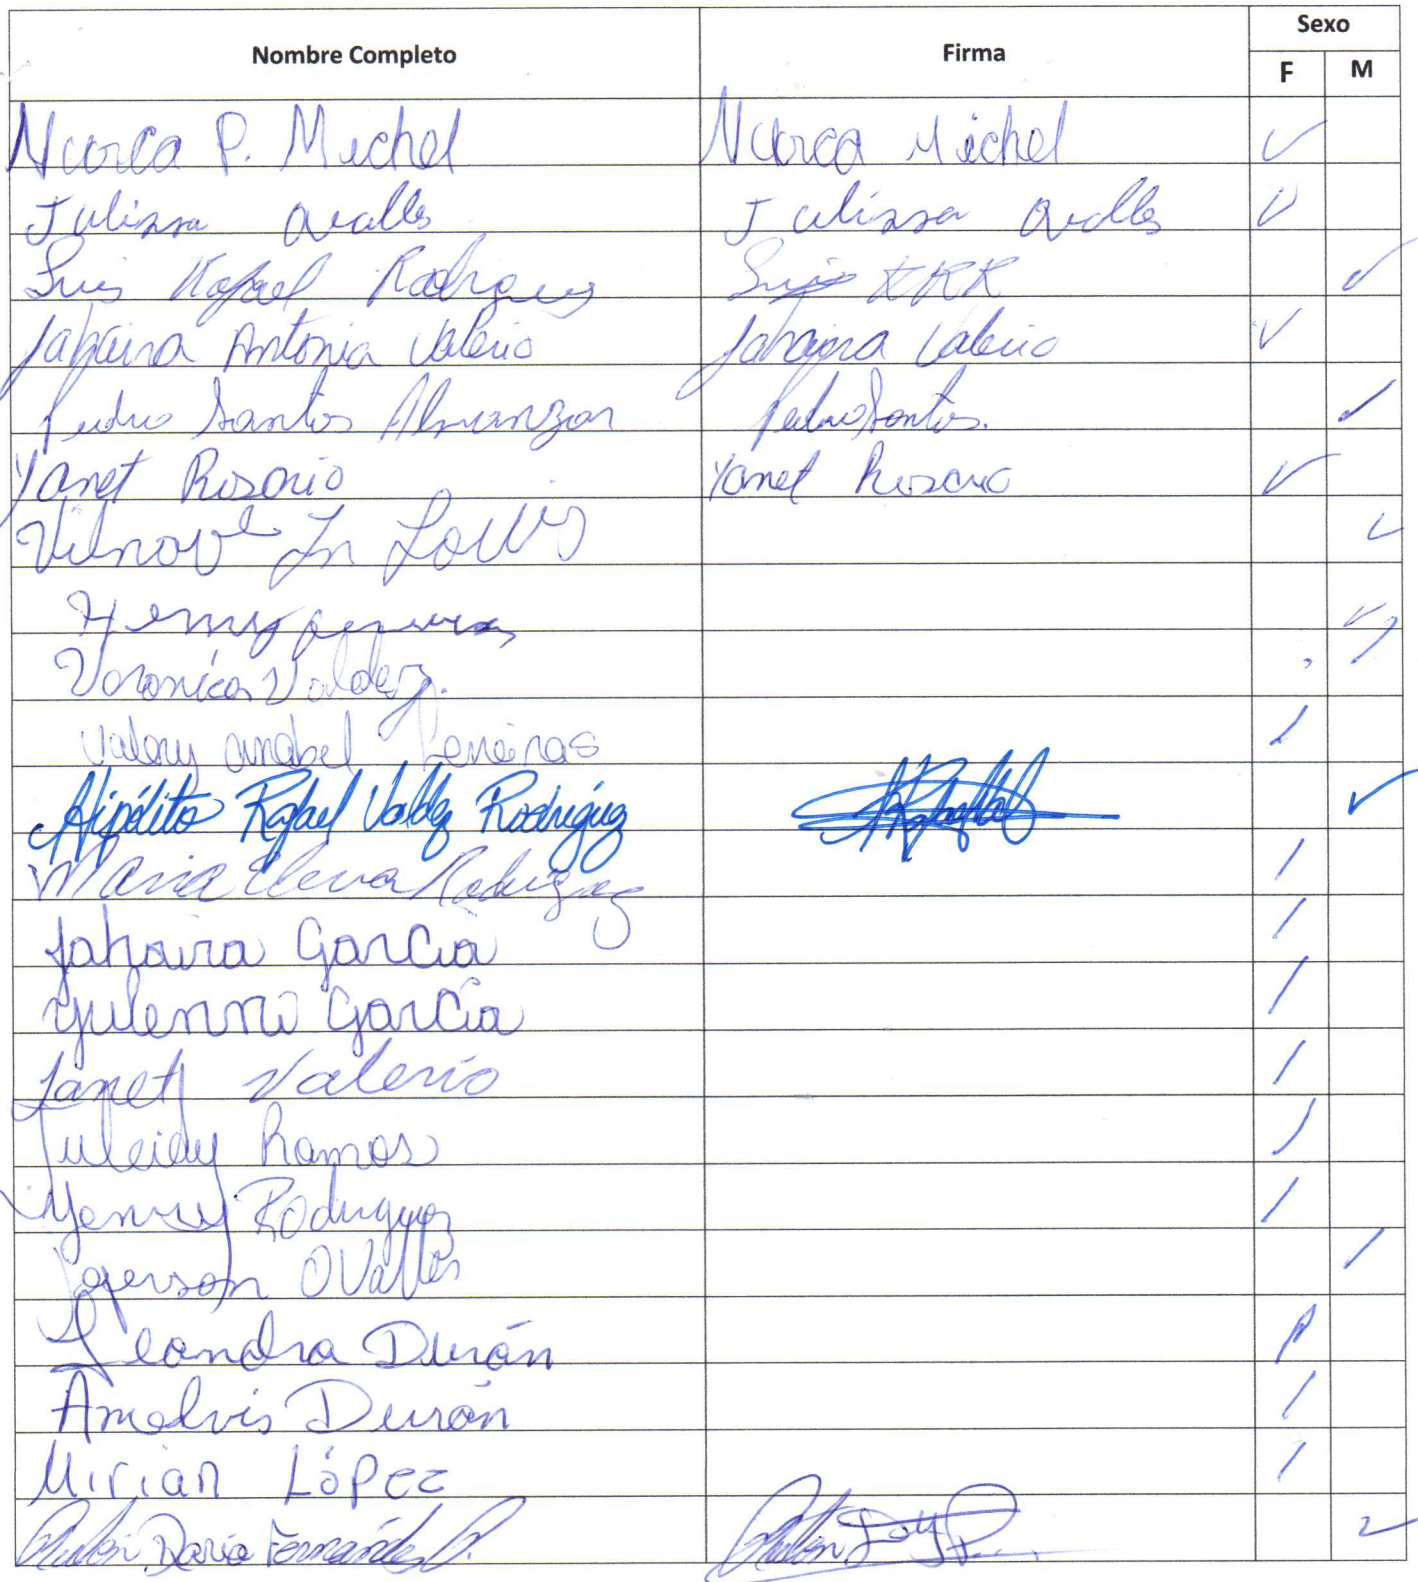 Nombre Completo Firma Sexo
F M
Nurca P. Michel Nurca Michel ✓
Julissa Ovalles Julissa Ovalles ✓
Luis Rafael Rodriguez Luis RRR ✓
Jahaira Antonia Valerio Jahaira Valerio ✓
Pedro Santos Almanzar Pedro Santos. ✓
Yanet Rosario Yanet Rosario ✓
Jn Louis ✓
Henry ✓
Veronica Valdez. ✓
Valery anabel ✓
Hipólito Rafael Valdez Rodríguez ✓
Maria Elena Rodriguez /
Jahaira García /
Yulenni García /
Janet Valerio /
Yuleidy Ramos /
Yenny Rodriguez /
Gerson Ovalles /
Leandra Durán /
Amelvis Durán /
Mirian López /
Rubén Dario Fernández Rubén ✓